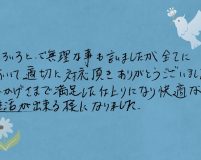 ろいろと、ご無理な事も言いましたが全てに
おいて適切に対応頂きありがとうございまし
かげさまで満足した仕上りになり快適な
生活が出来る様になりました。